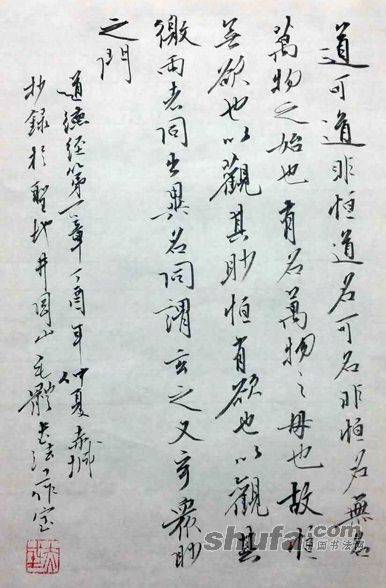 道可道非恒道名可名非恒名無名
萬物之始也有名萬物之母也故恒
無欲也以觀其眇恒有欲也以觀其
徼兩者同出異名同謂玄之又玄眾眇
之門
道德經第一章丁酉年仲夏赤城
抄錄於聖地井岡山毛體書法作室
shufa.com
中国书法网